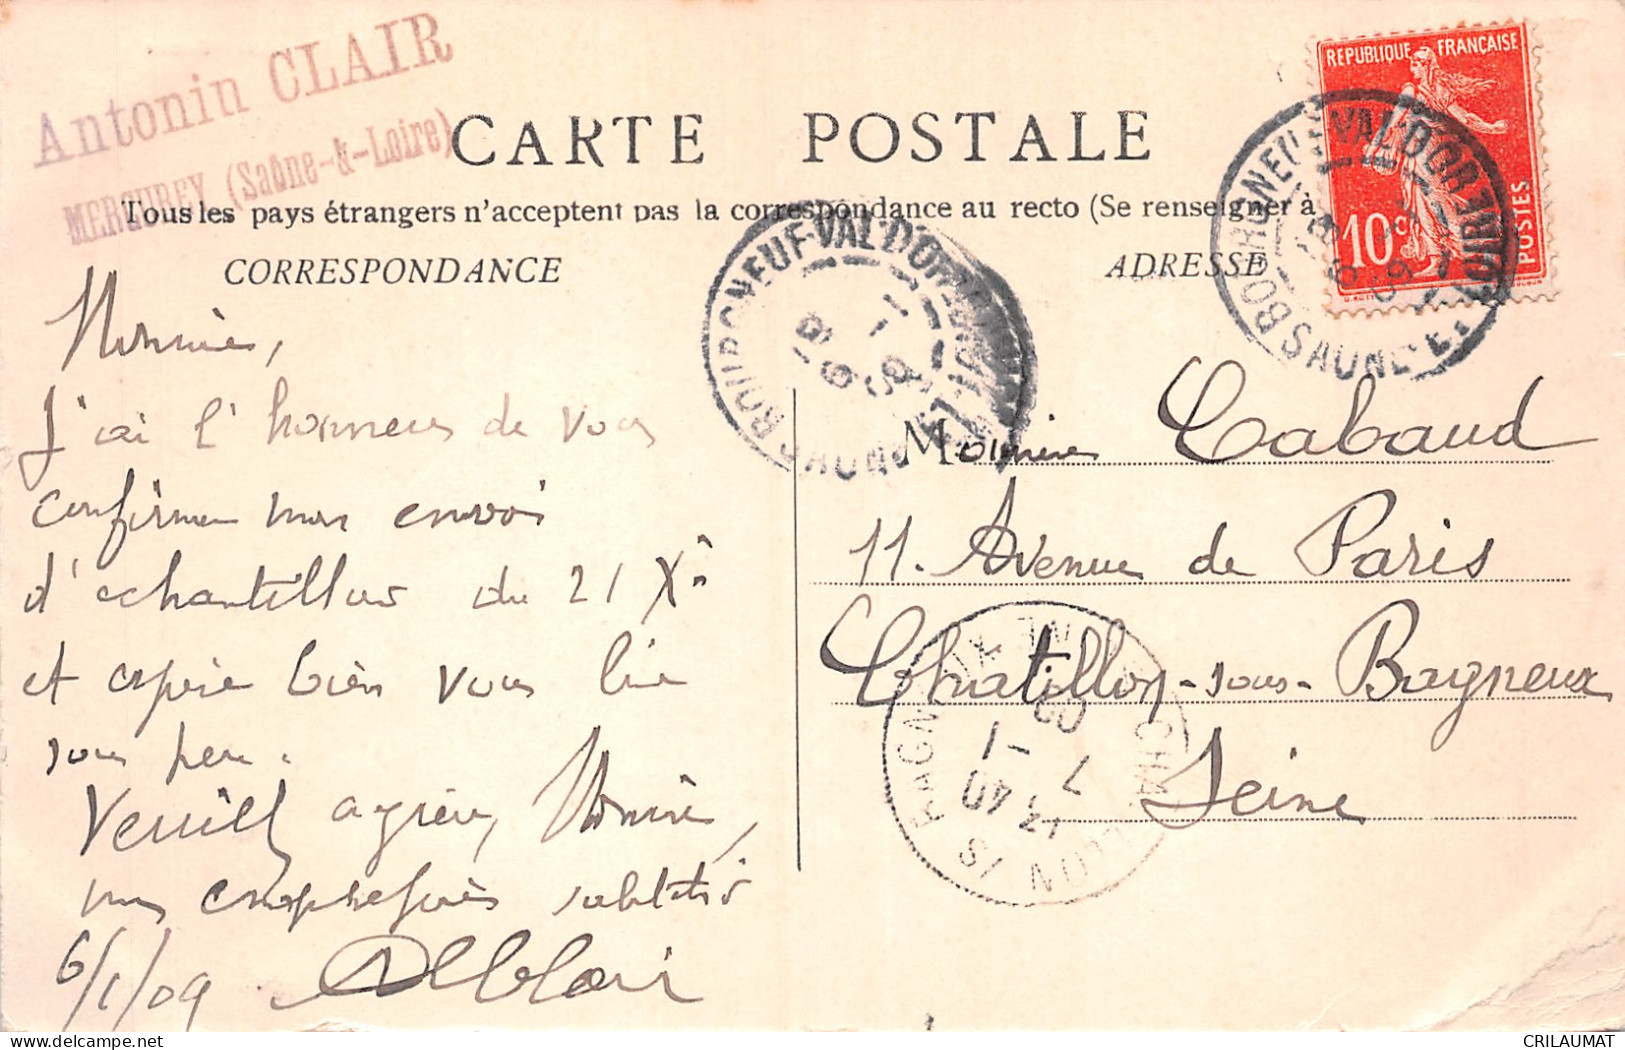 Antonin CLAIR
MERCUREY (Saône-&-Loire)
CARTE POSTALE
Tous les pays étrangers n'acceptent pas la correspondance au recto (Se renseigner à
CORRESPONDANCE
ADRESSE
REPUBLIQUE FRANÇAISE
10c
POSTES
BOURGNEUF-VAL-D'OR
SAONE-ET-LOIRE
6 -1 09
BOURGNEUF-VAL-D'OR
SAONE-ET-LOIRE
6 -1 09
Monsieur,
J'ai l'honneur de vous
confirmer mon envoi
d'échantillons du 21 Xre
et espère bien vous lire
sous peu.
Veuillez agréer, Monsieur,
mes salutations
6/1/09 AClair
Monsieur Cabaud
11. Avenue de Paris
Chatillon-sous-Bagneux
Seine
CHATILLON S/S BAGNEUX
SEINE
12 40
7 -1
09
CRILAUMAT